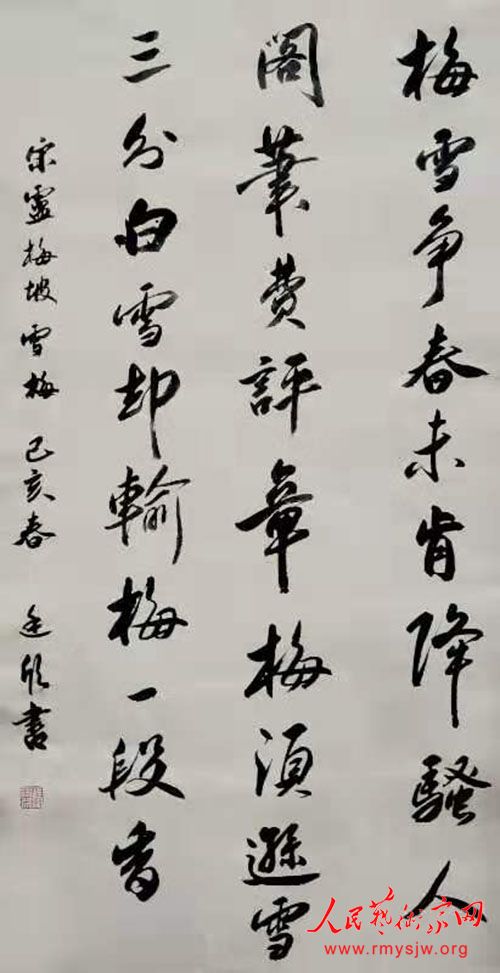 梅雪争春未肯降騷人
閣筆費評章梅須遜雪
三分白雪却輸梅一段香
宋盧梅坡雪梅 己亥春 書
人民藝術家网
www.rmysjw.org